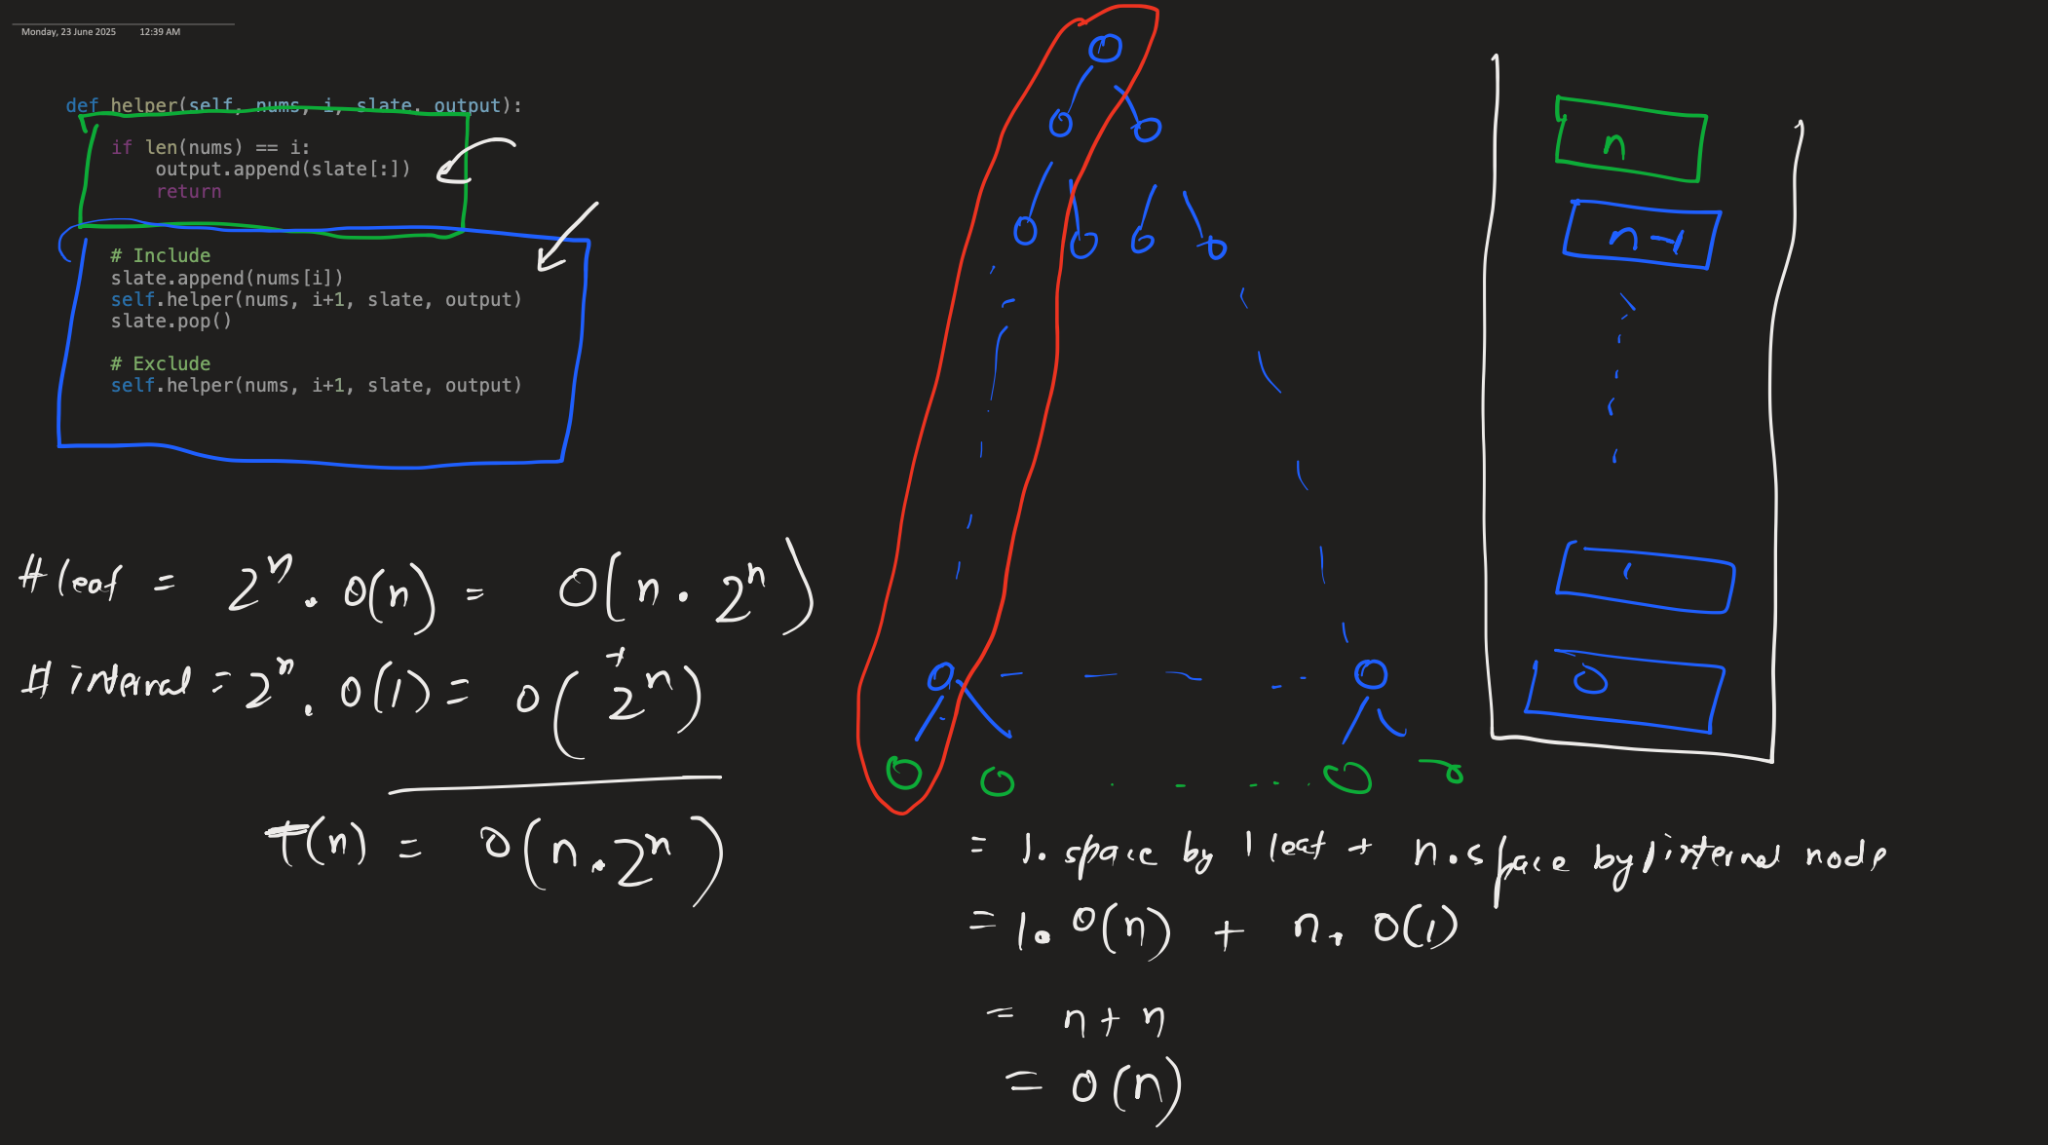 Monday, 23 June 2025 12:39 AM
def helper(self, nums, i, slate, output):
if len(nums) == i:
output.append(slate[:])
return
# Include
slate.append(nums[i])
self.helper(nums, i+1, slate, output)
slate.pop()
# Exclude
self.helper(nums, i+1, slate, output)
#leaf = 2^n . O(n) = O(n . 2^n)
+
# internal = 2^n . O(1) = O(2^n)
T(n) = O(n.2^n)
n
n-1
1
0
= 1. space by 1 leaf + n. space by 1 internal node
= 1. O(n) + n. O(1)
= n + n
= O(n)